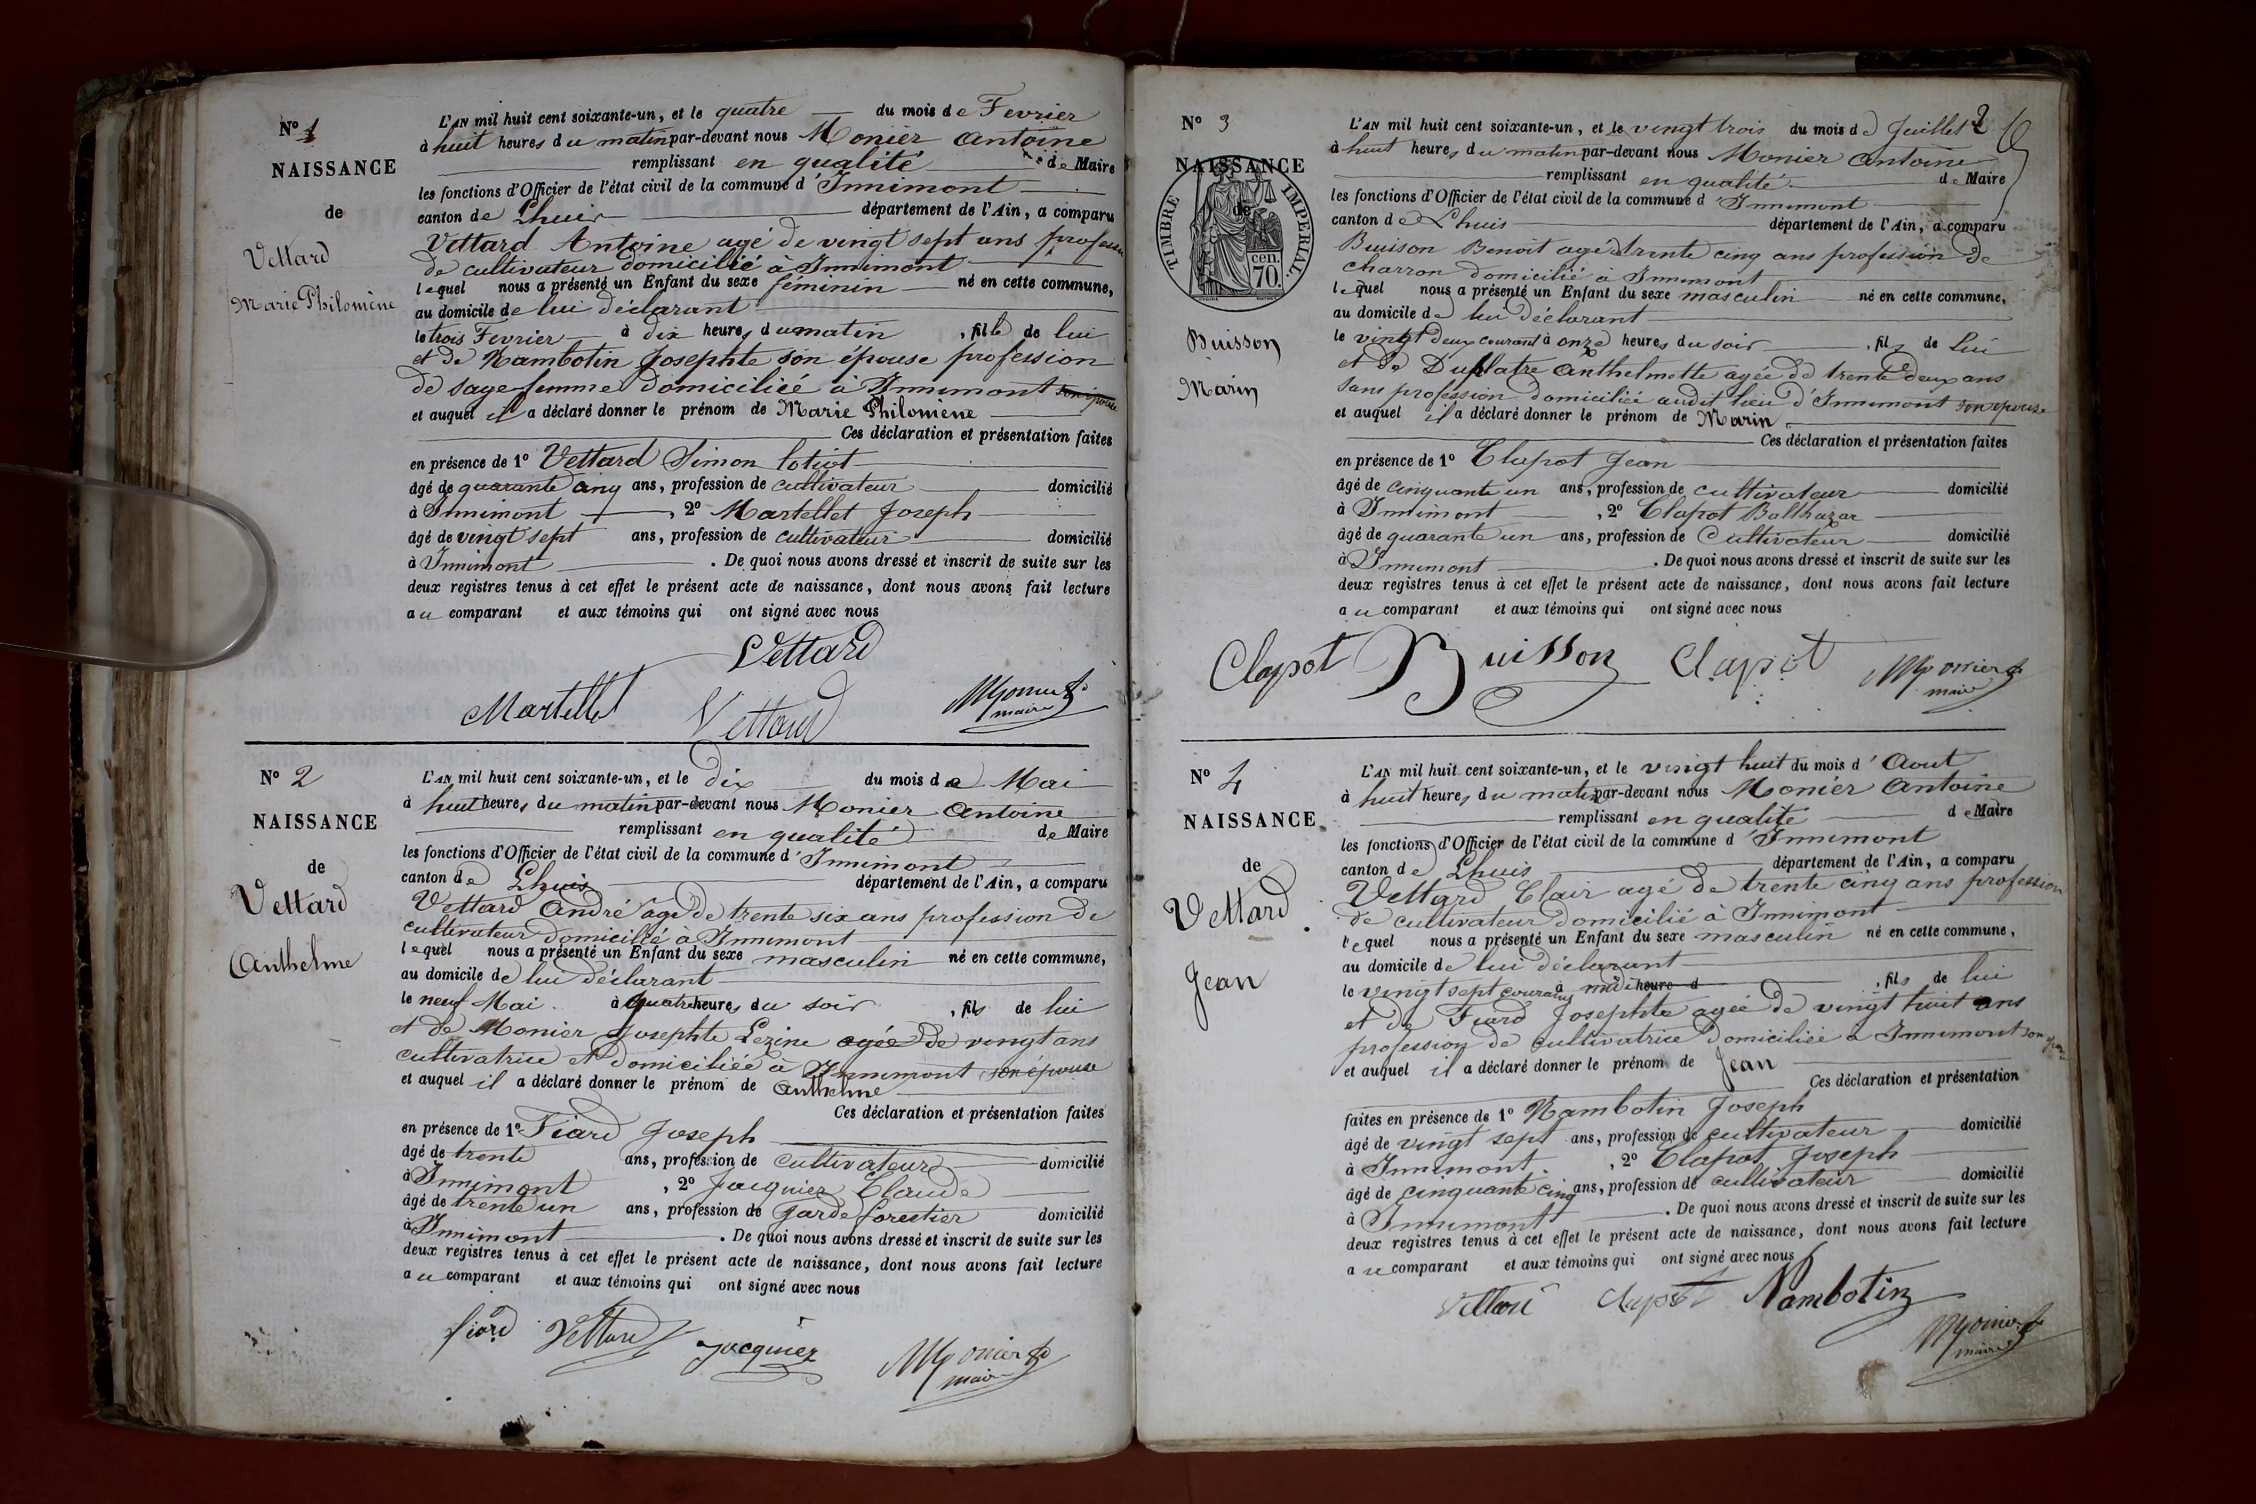 N° 1
NAISSANCE
de
Vettard
Marie Philomène
L'AN mil huit cent soixante-un, et le quatre du mois de Fevrier
à huit heures du matin par-devant nous Monier Antoine
remplissant en qualité de Maire
les fonctions d'Officier de l'état civil de la commune d'Innimont
canton de Lhuis département de l'Ain, a comparu
Vettard Antoine agé de vingt sept ans profession
de cultivateur domicilié à Innimont
lequel nous a présenté un Enfant du sexe féminin né en cette commune,
au domicile de lui déclarant
le trois Fevrier à dix heures du matin, fille de lui
et de Nambotin Josephte son épouse profession
de sage-femme domiciliée à Innimont son épouse
et auquel il a déclaré donner le prénom de Marie Philomène
Ces déclaration et présentation faites
en présence de 1° Vettard Simon
âgé de quarante cinq ans, profession de cultivateur domicilié
à Innimont, 2° Martellet Joseph
âgé de vingt sept ans, profession de cultivateur domicilié
à Innimont. De quoi nous avons dressé et inscrit de suite sur les
deux registres tenus à cet effet le présent acte de naissance, dont nous avons fait lecture
au comparant et aux témoins qui ont signé avec nous
Vettard
Martellet Vettard Monier
maire
N° 2
NAISSANCE
de
Vettard
Anthelme
L'AN mil huit cent soixante-un, et le dix du mois de Mai
à huit heures du matin par-devant nous Monier Antoine
remplissant en qualité de Maire
les fonctions d'Officier de l'état civil de la commune d'Innimont
canton de Lhuis département de l'Ain, a comparu
Vettard André agé de trente six ans profession de
cultivateur domicilié à Innimont
lequel nous a présenté un Enfant du sexe masculin né en cette commune,
au domicile de lui déclarant
le neuf Mai à quatre heures du soir, fils de lui
et de Monier Josephte Lezine agée de vingt ans
cultivatrice et domiciliée à Innimont son épouse
et auquel il a déclaré donner le prénom de Anthelme
Ces déclaration et présentation faites
en présence de 1° Fiard Joseph
âgé de trente ans, profession de cultivateur domicilié
à Innimont, 2° Jacquier Claude
âgé de trente un ans, profession de garde forestier domicilié
à Innimont. De quoi nous avons dressé et inscrit de suite sur les
deux registres tenus à cet effet le présent acte de naissance, dont nous avons fait lecture
au comparant et aux témoins qui ont signé avec nous
fiard Vettard Jacquier Monier
maire
2
N° 3
NAISSANCE
de
TIMBRE IMPERIAL
70 cen.
Buisson
Marin
L'AN mil huit cent soixante-un, et le vingt trois du mois de Juillet
à huit heures du matin par-devant nous Monier Antoine
remplissant en qualité de Maire
les fonctions d'Officier de l'état civil de la commune d'Innimont
canton de Lhuis département de l'Ain, a comparu
Buison Benoit agé trente cinq ans profession de
charron domicilié à Innimont
lequel nous a présenté un Enfant du sexe masculin né en cette commune,
au domicile de lui déclarant
le vingt deux courant à onze heures du soir, fils de lui
et de Duplatre Anthelmette agée de trente deux ans
sans profession domiciliée audit lieu d'Innimont son épouse
et auquel il a déclaré donner le prénom de Marin
Ces déclaration et présentation faites
en présence de 1° Clapot Jean
âgé de cinquante un ans, profession de cultivateur domicilié
à Innimont, 2° Clapot Balthazar
âgé de quarante un ans, profession de Cultivateur domicilié
à Innimont. De quoi nous avons dressé et inscrit de suite sur les
deux registres tenus à cet effet le présent acte de naissance, dont nous avons fait lecture
au comparant et aux témoins qui ont signé avec nous
Clapot Buisson Clapot Monier
maire
N° 4
NAISSANCE
de
Vettard
Jean
L'AN mil huit cent soixante-un, et le vingt huit du mois d'Aout
à huit heures du matin par-devant nous Monier Antoine
remplissant en qualité de Maire
les fonctions d'Officier de l'état civil de la commune d'Innimont
canton de Lhuis département de l'Ain, a comparu
Vettard Clair agé de trente cinq ans profession
de cultivateur domicilié à Innimont
lequel nous a présenté un Enfant du sexe masculin né en cette commune,
au domicile de lui déclarant
le vingt sept courant à midi heure d, fils de lui
et de Fiard Josephte agée de vingt huit ans
profession de cultivatrice domiciliée a Innimont son épouse
et auquel il a déclaré donner le prénom de Jean
Ces déclaration et présentation
faites en présence de 1° Nambotin Joseph
âgé de vingt sept ans, profession de cultivateur domicilié
à Innimont, 2° Clapot Joseph
âgé de cinquante cinq ans, profession de cultivateur domicilié
à Innimont. De quoi nous avons dressé et inscrit de suite sur les
deux registres tenus à cet effet le présent acte de naissance, dont nous avons fait lecture
au comparant et aux témoins qui ont signé avec nous
Vettard Clapot Nambotin
Monier
maire